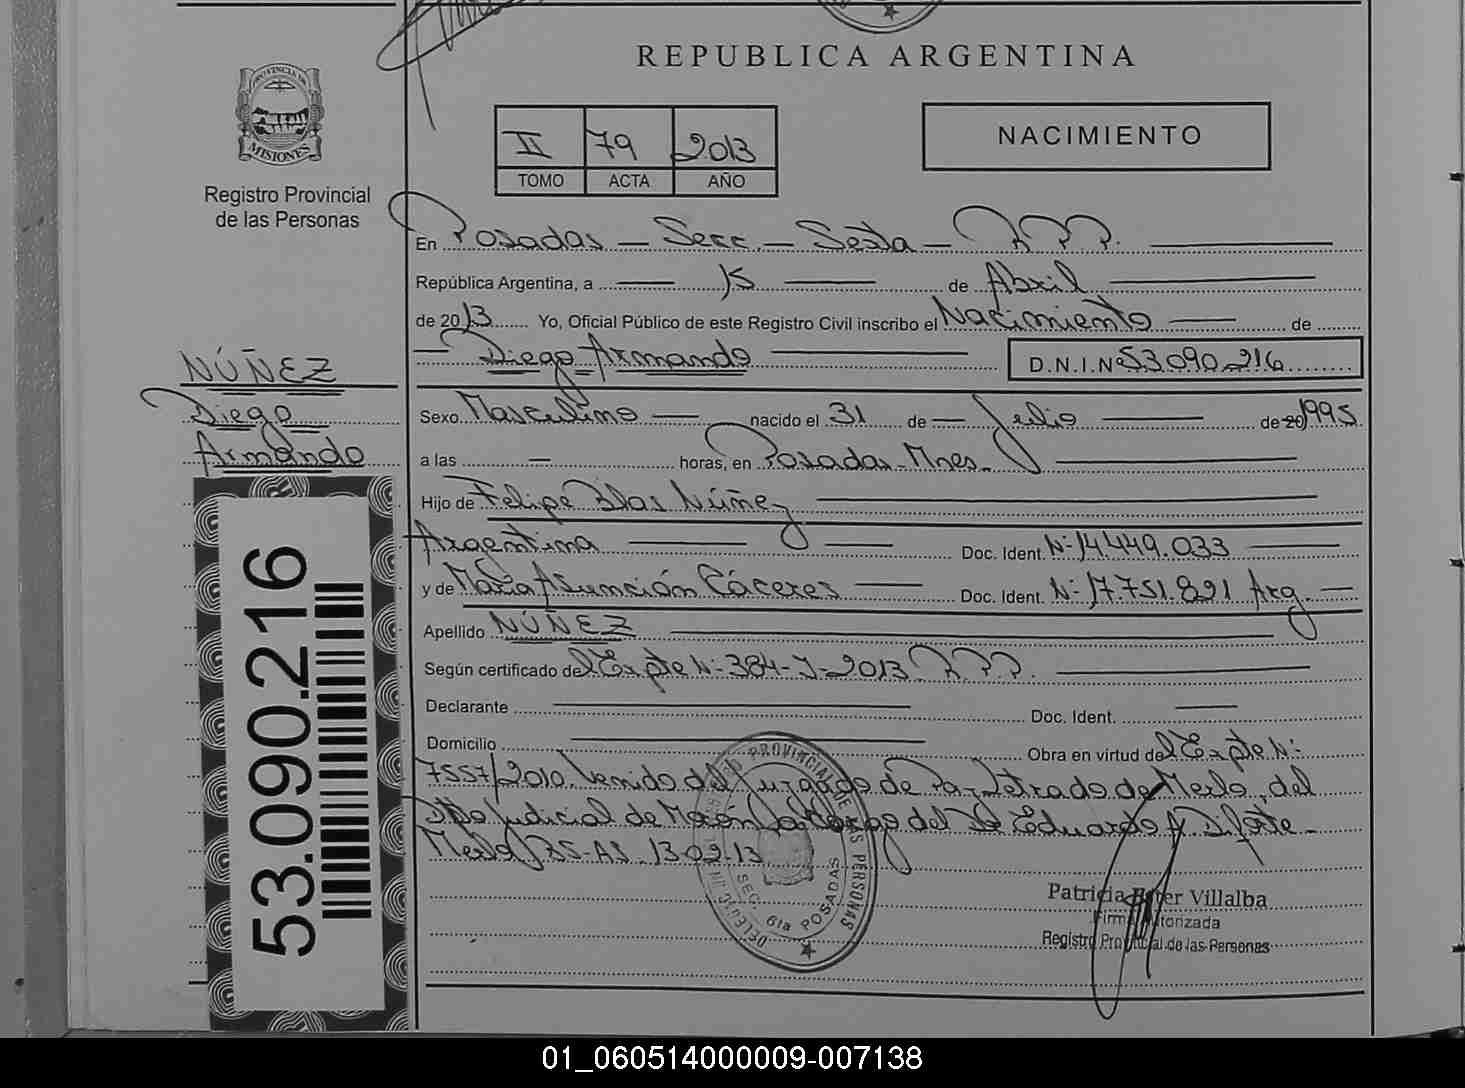 REPUBLICA ARGENTINA
PROVINCIA DE
MISIONES
Registro Provincial
de las Personas
II 79 2013
TOMO ACTA AÑO
NACIMIENTO
En Posadas - Secc. - Sexta - R.P.P.
República Argentina, a 15 de Abril
de 2013 Yo, Oficial Público de este Registro Civil inscribo el Nacimiento de
Diego Armando D.N.I.Nº 53.090.216
NÚÑEZ
Diego
Armando
Sexo Masculino nacido el 31 de Julio de 20 1995
a las — horas, en Posadas - Mnes.
Hijo de Felipe Blas Núñez
Argentina Doc. Ident. Nº 14.449.033
y de María Asunción Cáceres Doc. Ident. Nº 17.751.821 Arg.
Apellido NÚÑEZ
Según certificado del Expte Nº 384-J-2013 R.P.P.
Declarante Doc. Ident.
Domicilio Obra en virtud del Expte Nº
7557/2010. Venido del Juzgado de Paz Letrado de Merlo, del
Dpto Judicial de Morón a cargo del Dr Eduardo A.
Merlo, BS-AS. 13-02-13
53.090.216
SEC. 6ta POSADAS
Patricia Ester Villalba
Firma Autorizada
Registro Provincial de las Personas
01_060514000009-007138